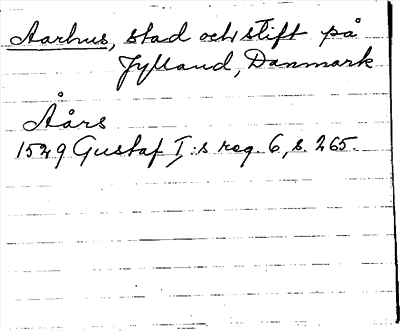 Aarhus, stad och stift på
Jylland, Danmark
Åårs
1529 Gustaf I:s reg. 6, s. 265.